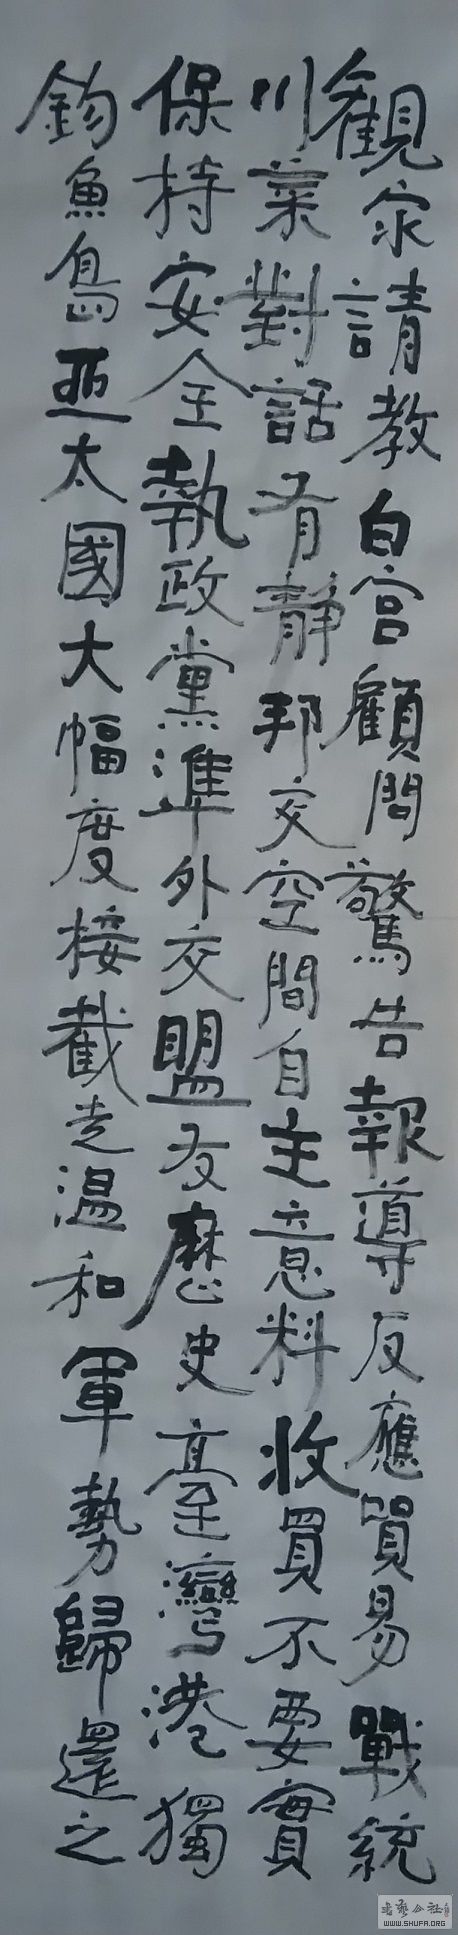 觀家請教白宮顧問驚告報導反應貿易戰統
川菜對話有靜邦交空間自主意料收買不要實
保持安全執政黨準外交盟友歷史臺灣港獨
釣魚島亞太國大幅度接截走溫和軍勢歸還之
WWW.SHUFA.ORG